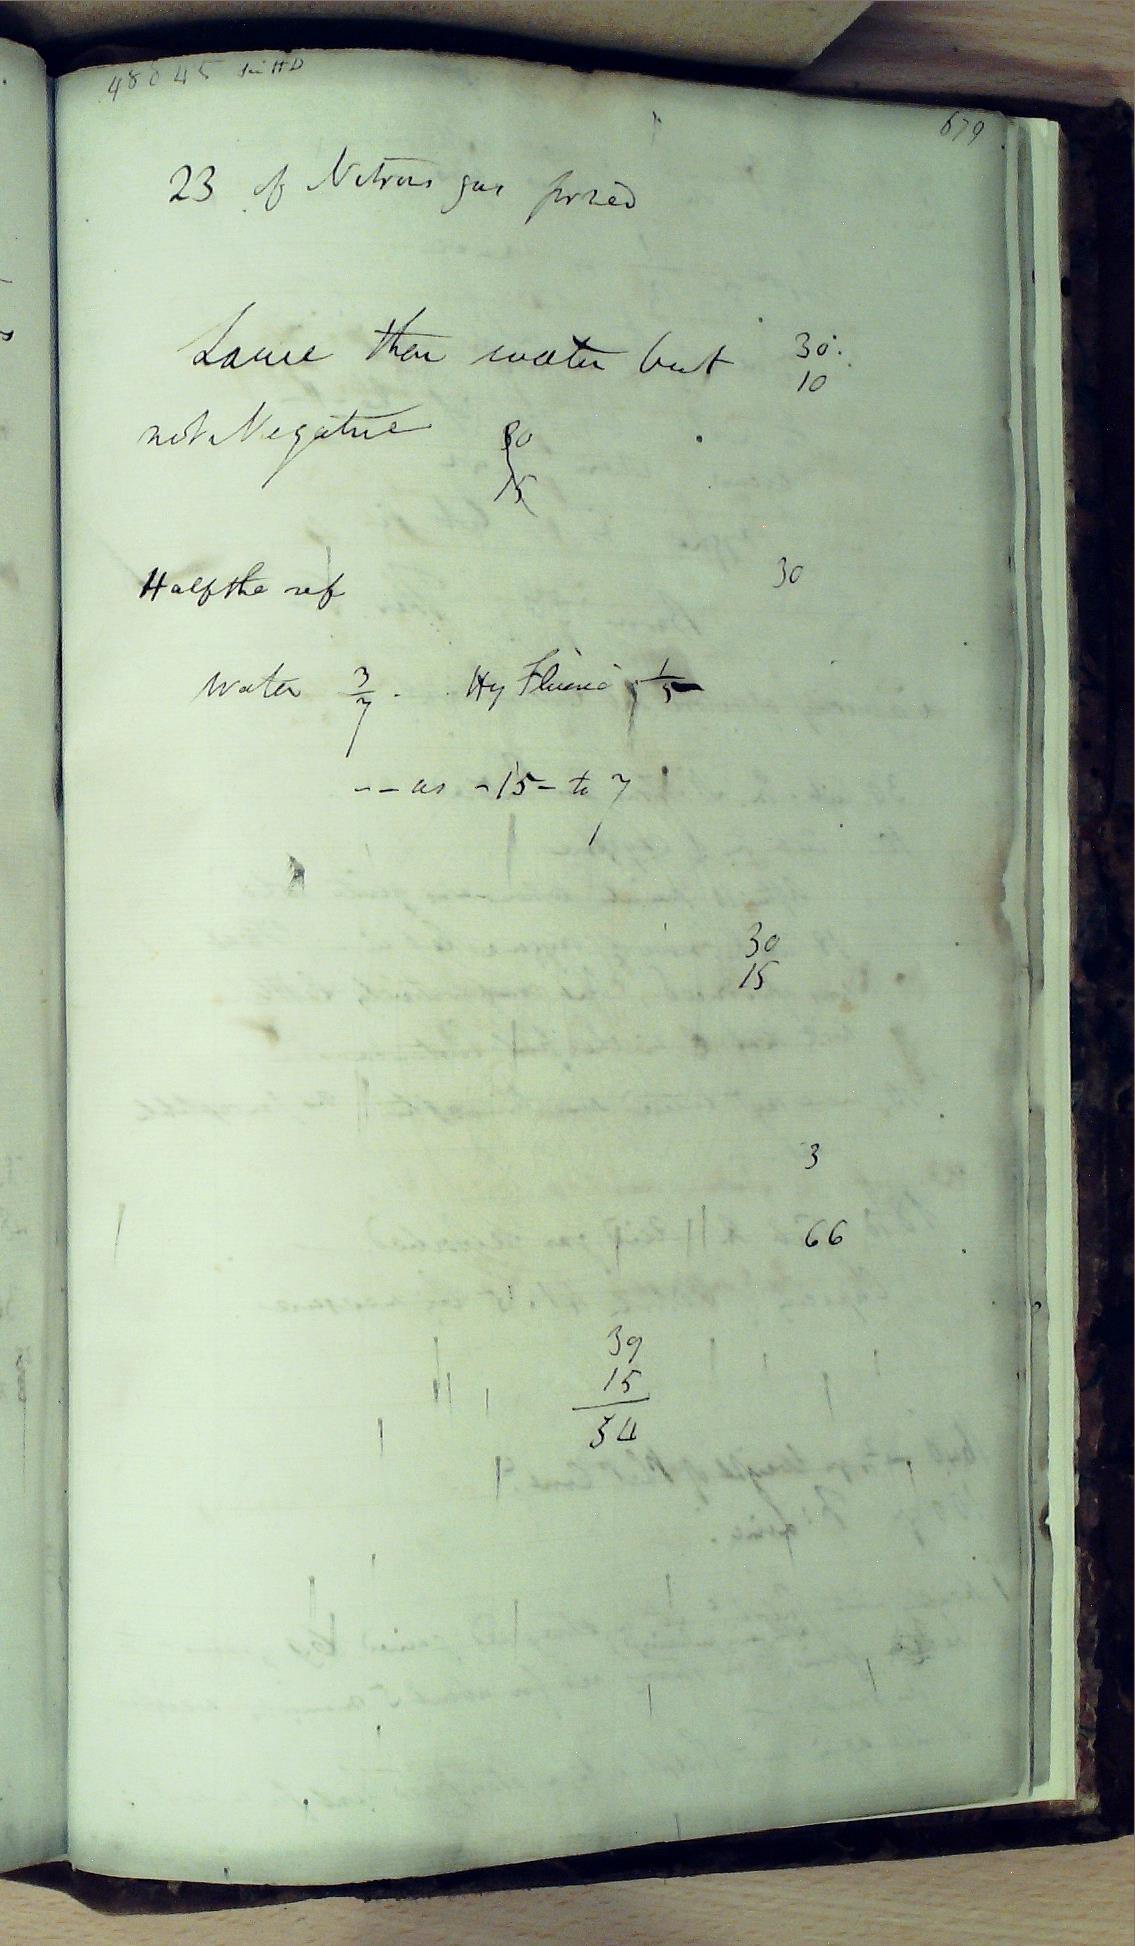 48645
679
23 of Nitrous gas
than water but 30.
10
not Negative 30
15
Half the ref 30
Water 3/7. Hy Fluoric 1/5
-- as - 15 - to 7
30
15
3
66
39
15
34